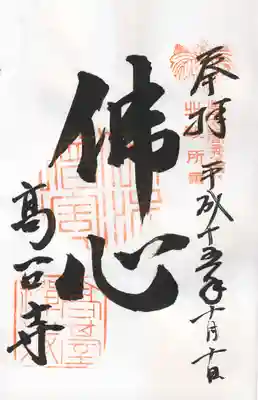 奉拝 平成十五年十月十日
佛心
高台寺